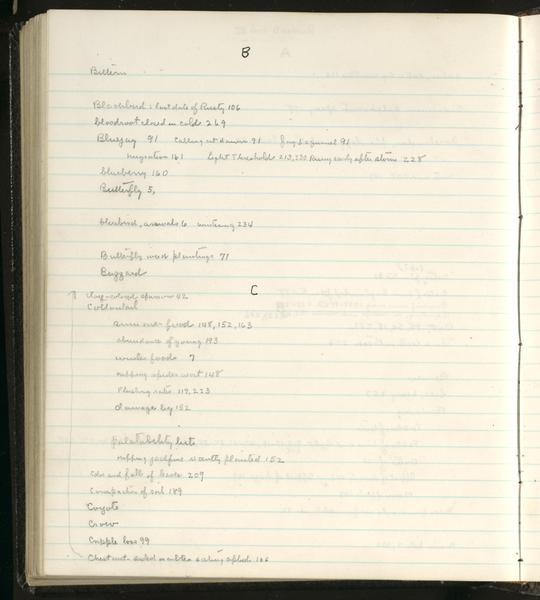 B
Bittern
Blackbird: last date of Rusty 106
bloodroot closed in cold 269
Bluejay 91 Calling at dawn 91 Jay & squirrel 91
migration 161 Light Thresholds 213, 220 early after storm 228
blueberry 160
Butterfly 5,
bluebird, arrivals 6 wintering 234
Butterfly weed plantings 71
Buzzard
C
clay-colored sparrow 42
Cottontail
summer food 148, 152, 163
abundance of young 193
winter food 7
nipping spider wort 148
flushing rates 119, 223
damage by 152
palatability lists
nipping recently planted 152
Color and fall of leaves 209
Compaction of soil 189
Coyote
Crow
Cripple loss 99
Chestnut-sided warbler eating aphids 106